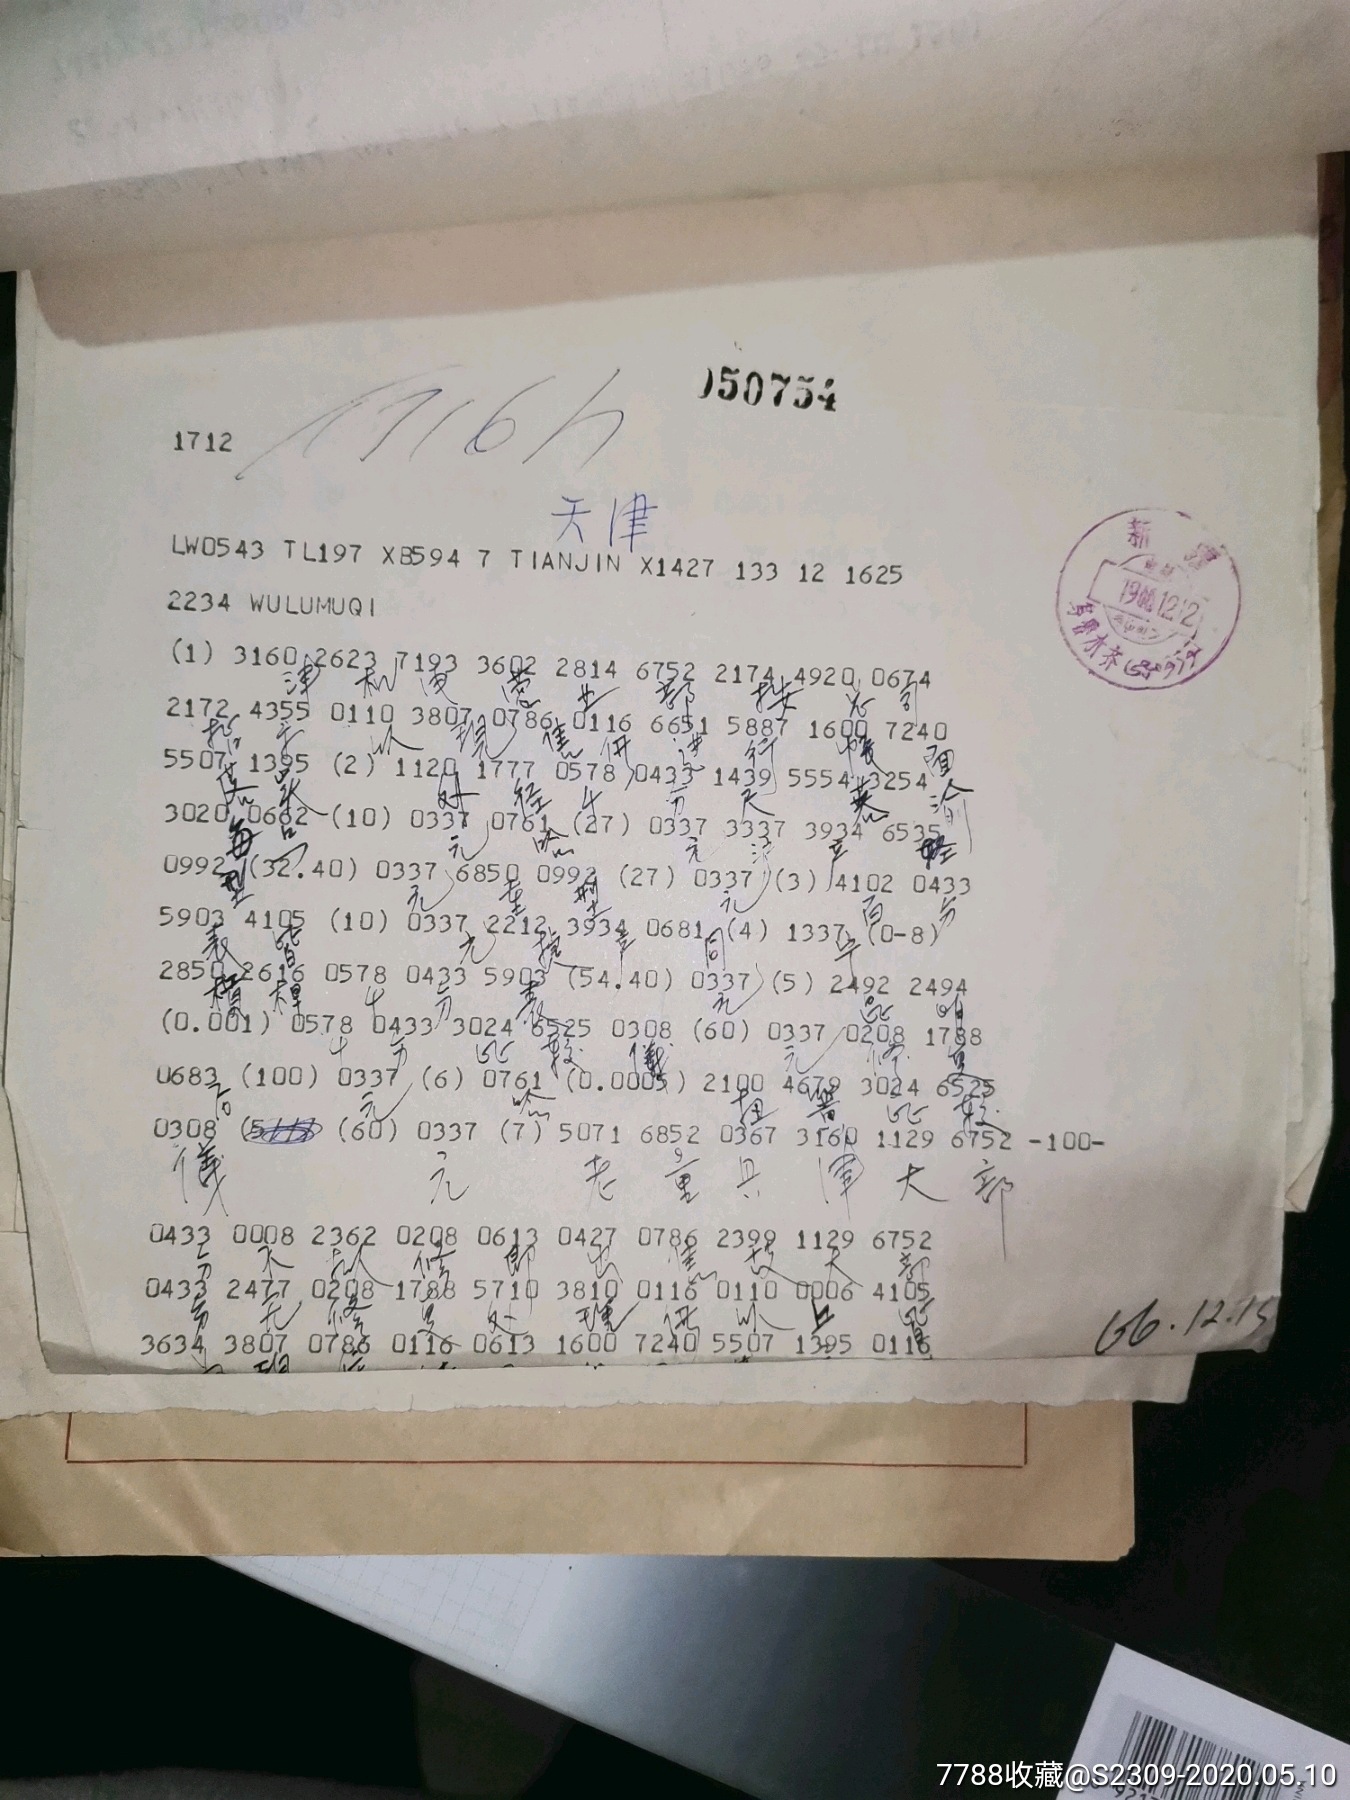 050754
1712
1716
天津
LW0543 TL197 XB594 7 TIANJIN X1427 133 12 1625
2234 WULUMUQI
新疆
1966.12.12
乌鲁木齐
(1) 3160 2623 7193 3602 2814 6752 2174 4920 0674
津 机 营 业 部 按 总 司
2172 4355 0110 3807 0786 0116 6651 5887 1600 7240
报 以 现 售 供 进 行 面
5507 1395 (2) 1120 1777 0578 0433 1439 5554 3254
外 径 千 分 天 渝
3020 0662 (10) 0337 0761 (27) 0337 3337 3934 6535
每 台 元 哈 元 沪 立 轻
0992 (32.40) 0337 6850 0992 (27) 0337 (3) 4102 0433
型 元 重 型 元 百 分
5903 4105 (10) 0337 2212 3934 0681 (4) 1337 (0-8)
表 皆 元 同
2850 2616 0578 0433 5903 (54.40) 0337 (5) 2492 2494
横 杠 千 分 表 元
(0.001) 0578 0433 3024 6525 0308 (60) 0337 0208 1788
千 分 比 较 仪 元 修 复
0683 (100) 0337 (6) 0761 (0.0005) 2100 4679 3024 6525
后 元 哈 扭 簧 比 较
0308 (60) 0337 (7) 5071 6852 0367 3160 1129 6752 -100-
仪 元 老 量 具 津 大 部
0433 0008 2362 0208 0613 0427 0786 2399 1129 6752
分 不 修 即 出 售 故 大 部
0433 2477 0208 1788 5710 3810 0116 0110 0006 4105
分 无 修 复 处 理 供 以 上 皆
3634 3807 0786 0116 0613 1600 7240 5507 1395 0116
66.12.15
7788收藏@S2309-2020.05.10